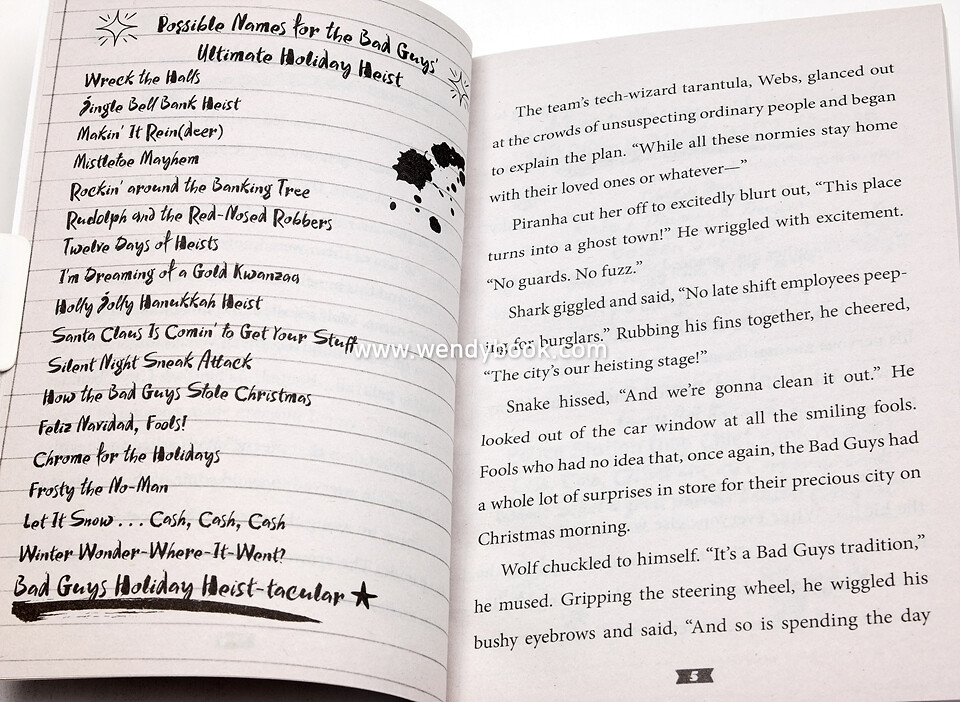 Possible Names for the Bad Guys'
Ultimate Holiday Heist
Wreck the Halls
Jingle Bell Bank Heist
Makin' It Rein(deer)
Mistletoe Mayhem
Rockin' around the Banking Tree
Rudolph and the Red-Nosed Robbers
Twelve Days of Heists
I'm Dreaming of a Gold Kwanzaa
Holly Jolly Hanukkah Heist
Santa Claus Is Comin' to Get Your Stuff
Silent Night Sneak Attack
How the Bad Guys Stole Christmas
Feliz Navidad, Fools!
Chrome for the Holidays
Frosty the No-Man
Let It Snow . . . Cash, Cash, Cash
Winter Wonder-Where-It-Went?
Bad Guys Holiday Heist-tacular
The team's tech-wizard tarantula, Webs, glanced out
at the crowds of unsuspecting ordinary people and began
to explain the plan. “While all these normies stay home
with their loved ones or whatever—”
Piranha cut her off to excitedly blurt out, “This place
turns into a ghost town!” He wriggled with excitement.
“No guards. No fuzz.”
Shark giggled and said, “No late shift employees peep-
ing for burglars.” Rubbing his fins together, he cheered,
“The city's our heisting stage!”
Snake hissed, “And we're gonna clean it out.” He
looked out of the car window at all the smiling fools.
Fools who had no idea that, once again, the Bad Guys had
a whole lot of surprises in store for their precious city on
Christmas morning.
Wolf chuckled to himself. “It's a Bad Guys tradition,”
he mused. Gripping the steering wheel, he wiggled his
bushy eyebrows and said, “And so is spending the day
5
www.wendybook.com